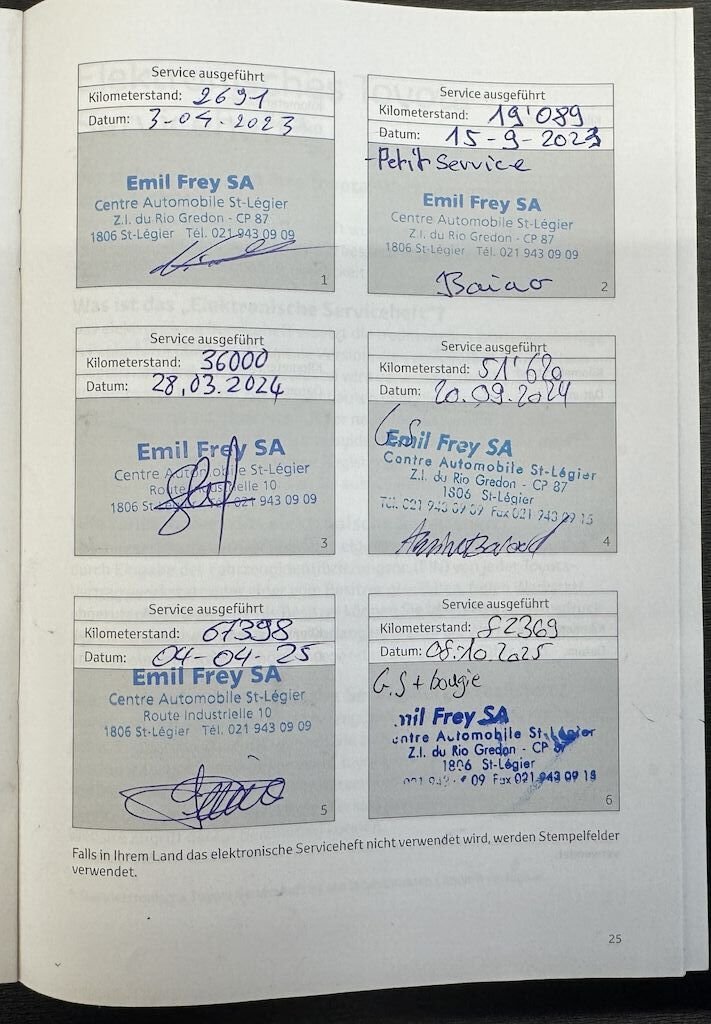 Service ausgeführt
Kilometerstand: 2691
Datum: 3-04-2023
Emil Frey SA
Centre Automobile St-Légier
Z.I. du Rio Gredon - CP 87
1806 St-Légier Tél. 021 943 09 09
1
Service ausgeführt
Kilometerstand: 19'089
Datum: 15-9-2023
-Petit Service
Emil Frey SA
Centre Automobile St-Légier
Z.I. du Rio Gredon - CP 87
1806 St-Légier Tél. 021 943 09 09
2
Service ausgeführt
Kilometerstand: 36000
Datum: 28.03.2024
Emil Frey SA
Centre Automobile St-Légier
Route Industrielle 10
1806 St-Légier Tél. 021 943 09 09
3
Service ausgeführt
Kilometerstand: 51'620
Datum: 20.09.2024
G.S
Emil Frey SA
Centre Automobile St-Légier
Z.I. du Rio Gredon - CP 87
1806 St-Légier
Tél. 021 943 09 09 Fax 021 943 09 15
4
Service ausgeführt
Kilometerstand: 67398
Datum: 04-04-25
Emil Frey SA
Centre Automobile St-Légier
Route Industrielle 10
1806 St-Légier Tél. 021 943 09 09
5
Service ausgeführt
Kilometerstand: 82369
Datum: 08.10.2025
G.S + bougie
mil Frey SA
entre Automobile St-Légier
Z.I. du Rio Gredon - CP 87
1806 St-Légier
09 Fax 021 943 09 15
6
Falls in Ihrem Land das elektronische Serviceheft nicht verwendet wird, werden Stempelfelder
verwendet.
25